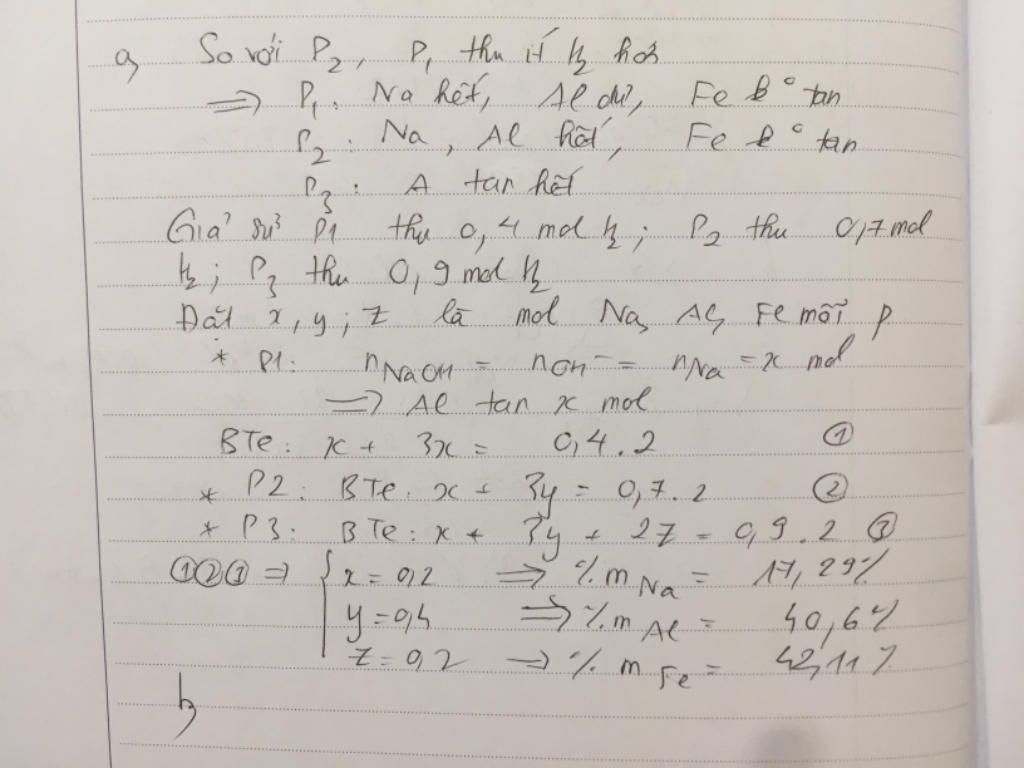 a, So với P2, P1 thu ít H2 hơn
=> P1: Na hết, Al dư, Fe k° tan
P2: Na, Al hết, Fe k° tan
P3: A tan hết
Giả sử P1 thu 0,4 mol H2; P2 thu 0,7 mol
H2; P3 thu 0,9 mol H2
Đặt x, y; z là mol Na, Al, Fe mỗi p
* P1: nNaOH = nOH⁻ = nNa = x mol
=> Al tan x mol
BTe: x + 3x = 0,4.2 ①
* P2: BTe: x + 3y = 0,7.2 ②
* P3: BTe: x + 3y + 2z = 0,9.2 ③
①②③ => { x = 0,2 => %mNa = 17,29%
y = 0,4 => %mAl = 40,6%
z = 0,2 => %mFe = 42,11%
b,